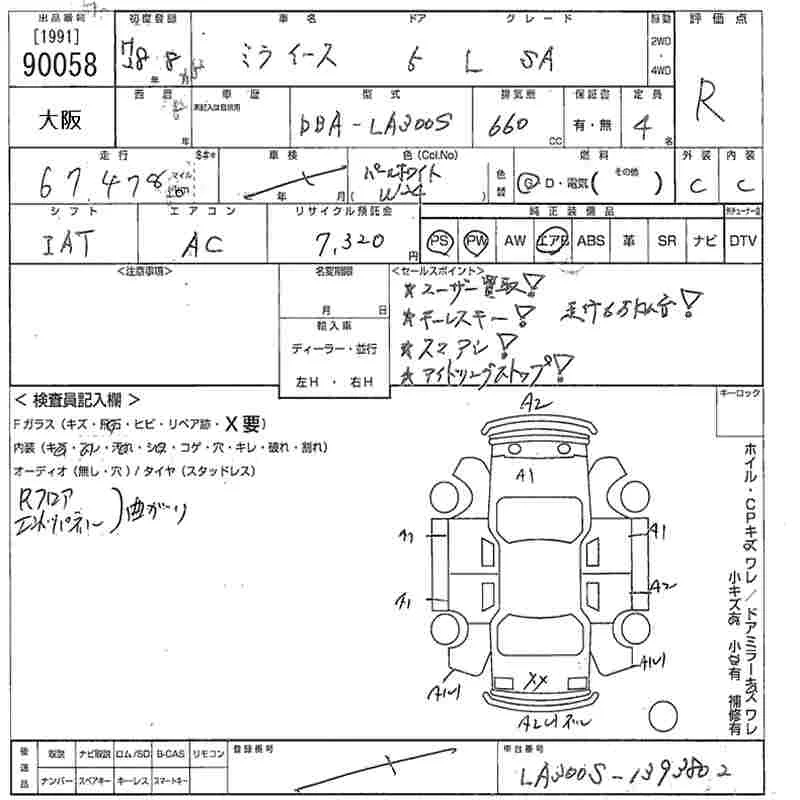 出品番号 初度登録 車名 ドア グレード 駆動 評価点
[1991]
90058
H28 年 8 月
ミライース 5 L SA
2WD
・
4WD
R
大阪
西暦 車歴 型式 排気量 保証書 定員
年
未記入は自家用
DBA-LA300S
660 CC
有・無
4 名
走行 S $#☆ 車検 色 (Col.No) 燃料 外装 内装
67,478 マイル km
年 月
パールホワイト
W24
色替
G・D・電気( その他 )
C C
シフト エアコン リサイクル預託金 純正装備品
IAT AC 7,320 円
PS PW AW エアB ABS 革 SR ナビ DTV
<注意事項>
名変期限
月 日
輸入車
ディーラー・並行
左H ・ 右H
<セールスポイント>
★ユーザー買取!
★キーレスキー! 走行6万km台!
★スマアシ!
★アイドリングストップ!
< 検査員記入欄 >
Fガラス (キズ・飛石・ヒビ・リペア跡・X要)
内装 (キズ・スレ・汚れ・シミ・コゲ・穴・キレ・破れ・割れ)
オーディオ (無し・穴) / タイヤ (スタッドレス)
Rフロア
エンドパネル
曲がり
キーロック
A2
A1
A1
A1
A1
A2
A1U1
A1U1
XX
ホイル・CPキズ ワレ / ドアミラーキズ ワレ
小キズ有 小凹有 補修有
後送品
取説 ナビ取説 ロム/SD B-CAS リモコン
ナンバー スペアキー キーレス スマートキー
登録番号
車台番号
LA300S-1393802